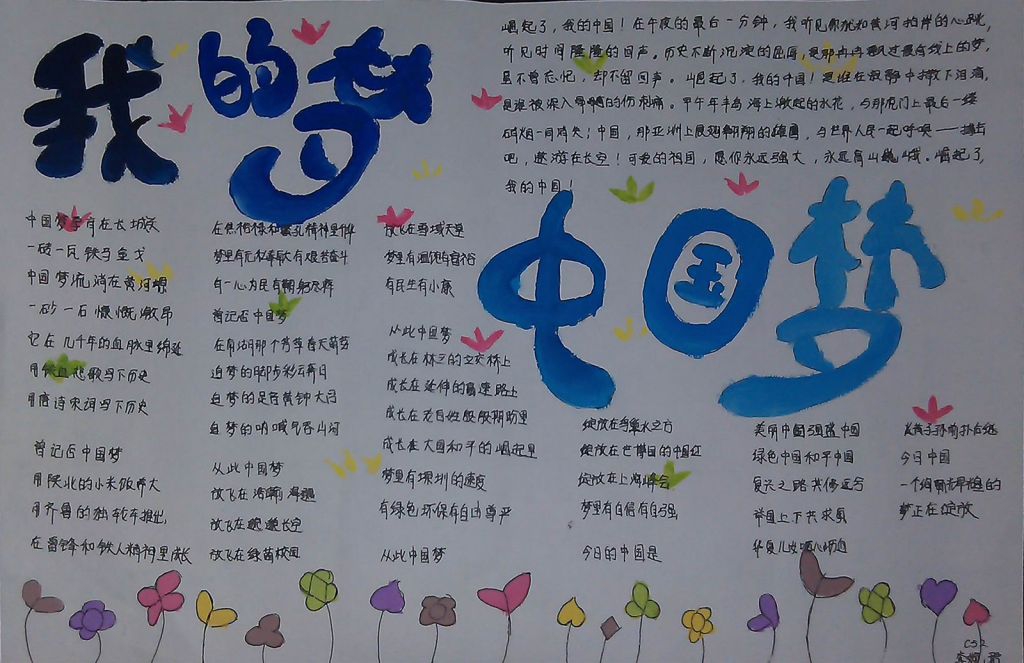 我的梦
中国梦
崛起了，我的中国！在午夜的最后一分钟，我听见你犹如黄河拍岸的心跳，
听见时间隆隆的回声。历史不断沉淀的
是不曾忘记，却不留回声。崛起了，我的中国！是谁在寂静中撒下泪滴，
是谁被深入骨髓的伤刺痛。甲午年半岛海上激起的水花，与那虎门上最后一缕
硝烟一同消失！中国，那亚洲上展翅翱翔的雄鹰，与世界人民一起呼唤——搏击
吧，遨游在长空！可爱的祖国，愿你永远强大，永远高山巍峨。崛起了，
我的中国！
中国梦孕育在长城
一砖一瓦铁马金戈
中国梦流淌在黄河
一砂一石慷慨激昂
它在几千年的血脉里绵延
用铁血悲歌写下历史
用唐诗宋词写下历史
曾记否中国梦
用陕北的小米饭养大
用齐鲁的独轮车推出
在雷锋和铁人精神里成长
在焦裕禄和孔精神里
梦里有
有一心为民有鞠躬尽瘁
曾记否中国梦
在南湖那个
追梦的脚步彩云奔日
追梦的足音黄钟大吕
追梦的呐喊气吞山河
从此中国梦
放飞在浩瀚海疆
放飞在
放飞在绿茵校园
放飞在雪域天堂
梦里有温饱有富裕
有民生有小康
从此中国梦
成长在林立的立交桥上
成长在延伸的高速路上
成长在老百姓殷殷期盼里
成长在大国和平的崛起里
梦里有深圳的速度
有绿色环保有自由尊严
从此中国梦
绽放在水立方
绽放在世博园的中国红
绽放在上海峰会
梦里有自信有自强
今日的中国是
美丽中国强盛中国
绿色中国和平中国
复兴之路
举国上下共求
华夏儿女
今日中国
一个
梦正在绽放